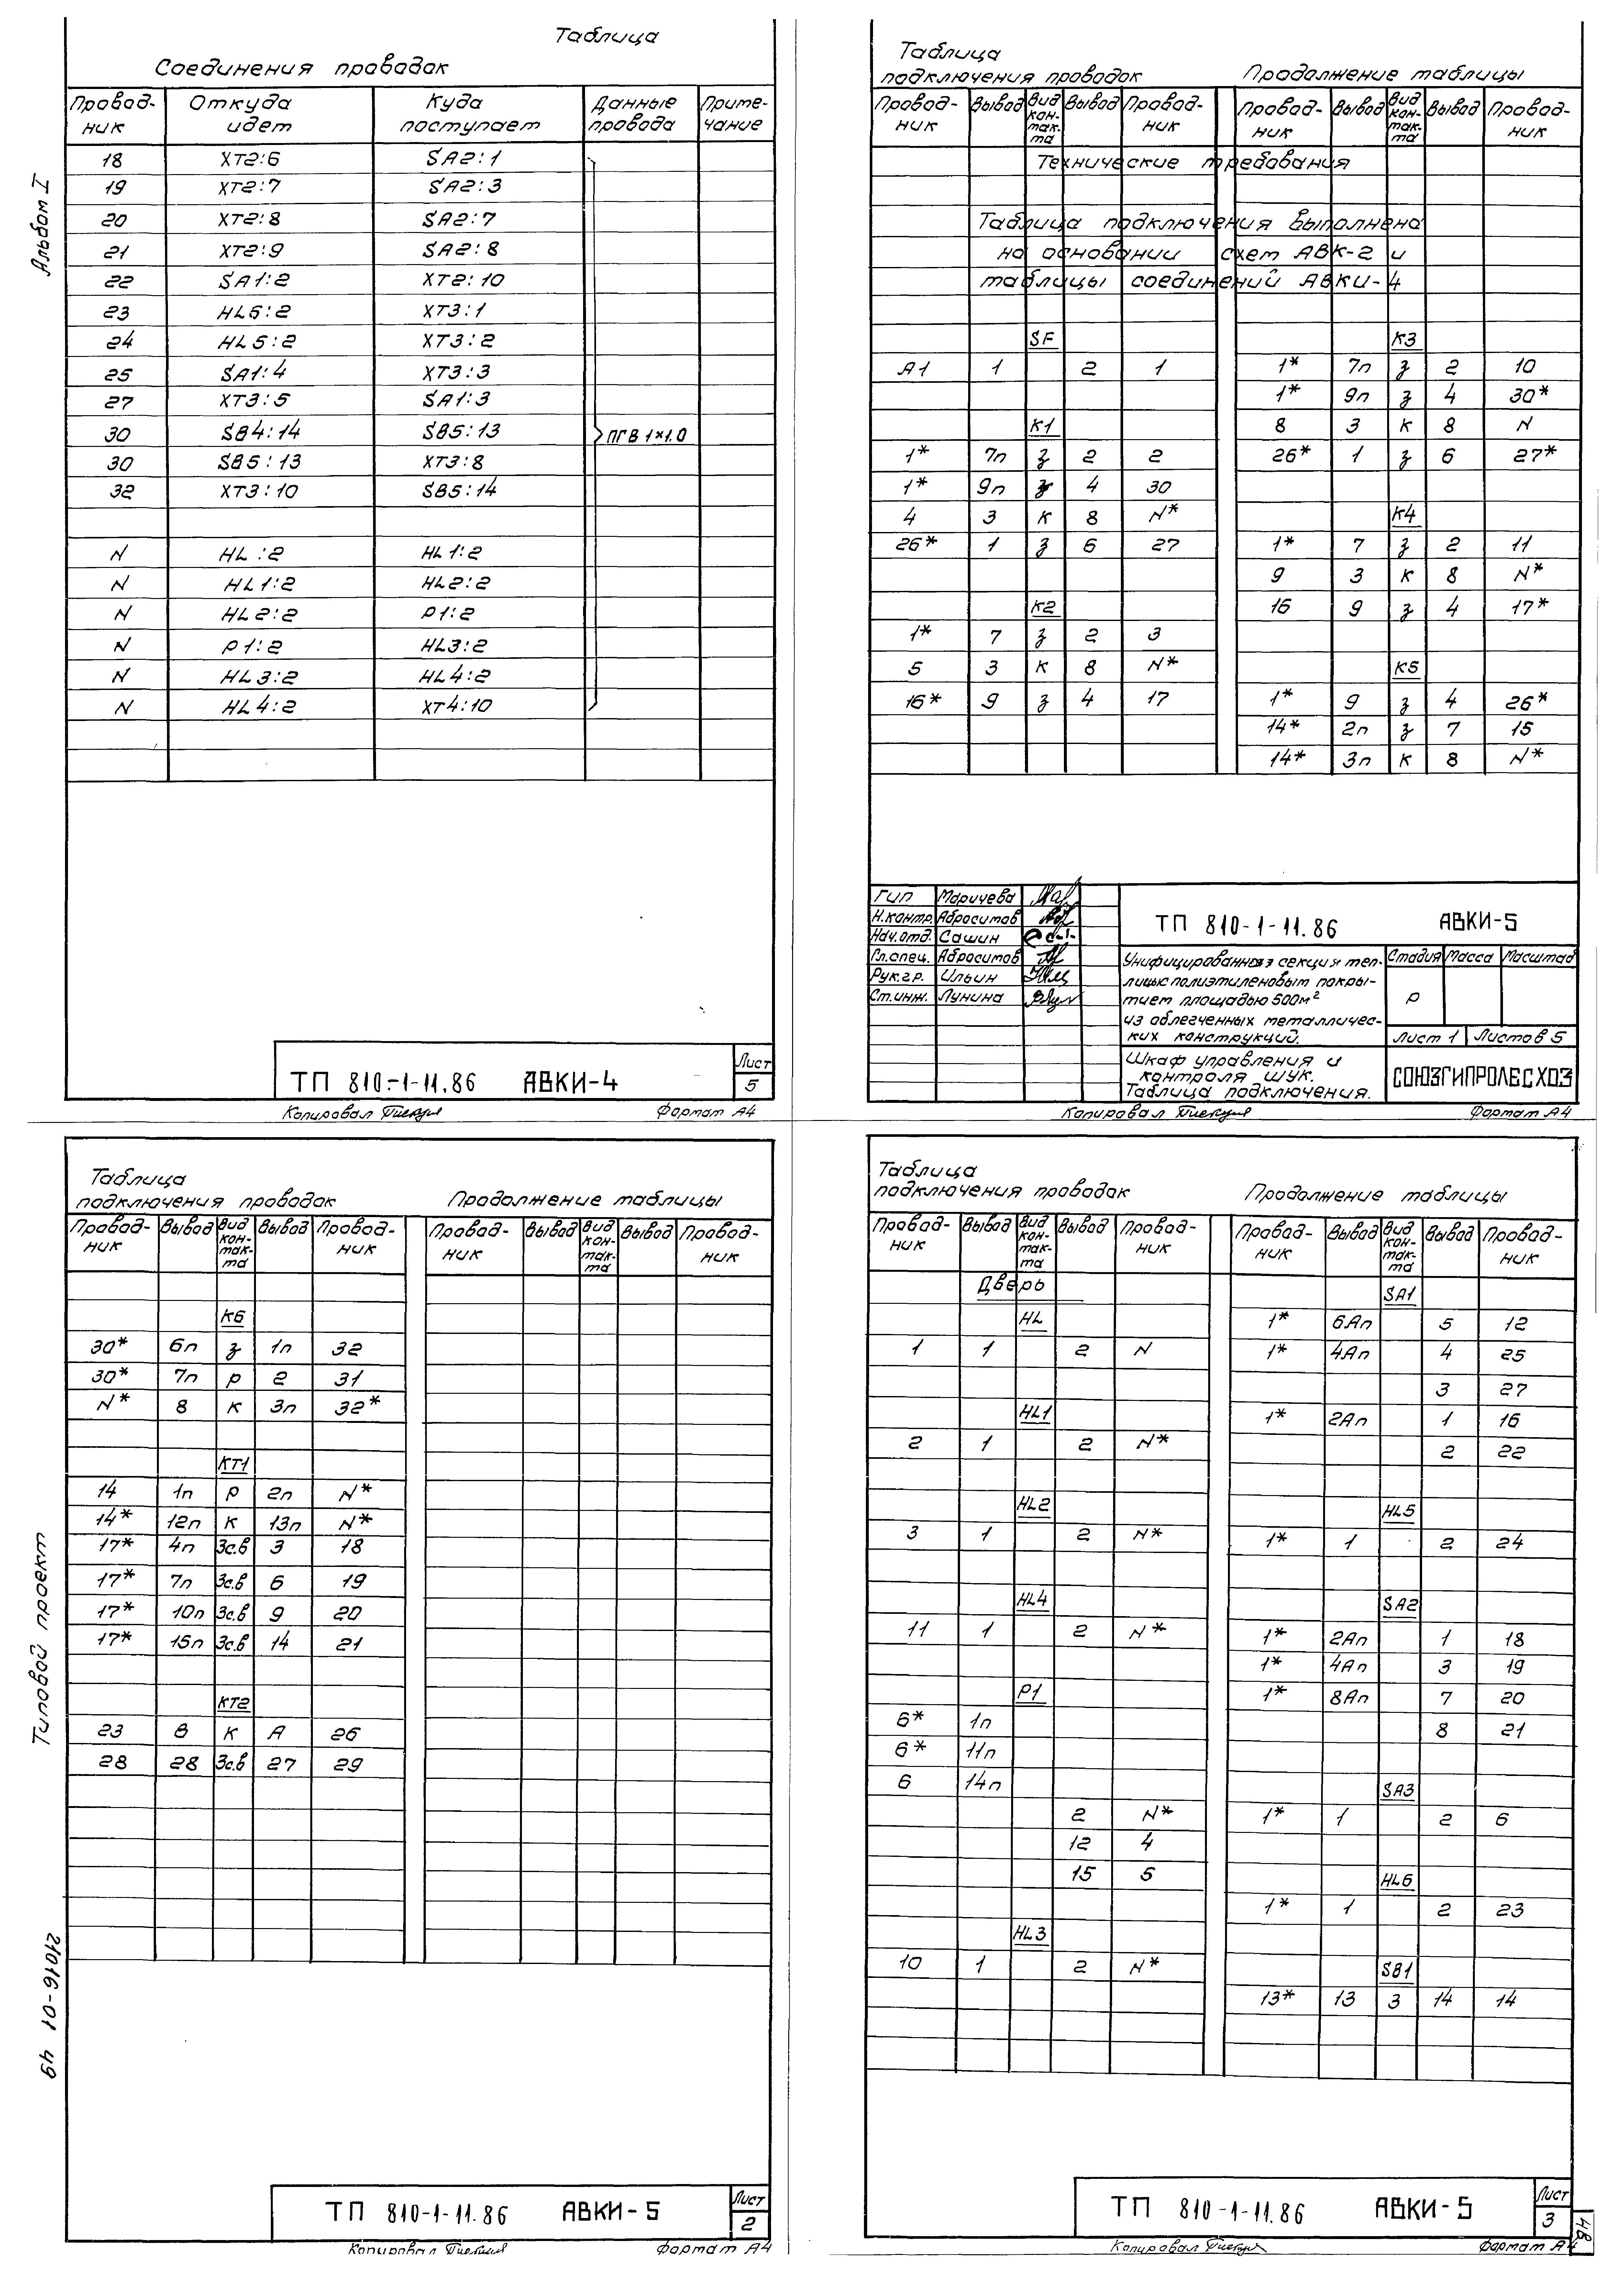 Альбом I
Таблица
Соединения проводок
Провод-ник Откуда идет Куда поступает Данные провода Приме-чание
18 XT2:6 SA2:1
19 XT2:7 SA2:3
20 XT2:8 SA2:7
21 XT2:9 SA2:8
22 SA1:2 XT2:10
23 HL6:2 XT3:1
24 HL5:2 XT3:2
25 SA1:4 XT3:3
27 XT3:5 SA1:3
30 SB4:14 SB5:13 ПГВ 1×1.0
30 SB5:13 XT3:8
32 XT3:10 SB5:14
N HL:2 HL1:2
N HL1:2 HL2:2
N HL2:2 P1:2
N P1:2 HL3:2
N HL3:2 HL4:2
N HL4:2 XT4:10
ТП 810-1-11.86 АВКИ-4
Лист
5
Копировал
Формат А4
Таблица
подключения проводок Продолжение таблицы
Провод-ник Вывод Вид кон-так-та Вывод Провод-ник Провод-ник Вывод Вид кон-так-та Вывод Провод-ник
Технические требования
Таблица подключения выполнена
на основании схем АВК-2 и
таблицы соединений АВКИ-4
SF
A1 1 2 1
K1
1* 7п з 2 2
1* 9п з 4 30
4 3 к 8 N*
26* 1 з 6 27
K2
1* 7 з 2 3
5 3 к 8 N*
16* 9 з 4 17
K3
1* 7п з 2 10
1* 9п з 4 30*
8 3 к 8 N
26* 1 з 6 27*
K4
1* 7 з 2 11
9 3 к 8 N*
16 9 з 4 17*
K5
1* 9 з 4 26*
14* 2п з 7 15
14* 3п к 8 N*
ГИП Маричева
Н.контр. Абросимов
Нач.отд. Сашин
Гл.спец. Абросимов
Рук.гр. Ильин
Ст.инж. Лунина
ТП 810-1-11.86 АВКИ-5
Унифицированная секция теп-
лицы с полиэтиленовым покры-
тием площадью 500м²
из облегченных металличес-
ких конструкций.
Стадия Масса Масштаб
Р
Лист 1 Листов 5
Шкаф управления и
контроля ШУК.
Таблица подключения.
СОЮЗГИПРОЛЕСХОЗ
Копировал
Формат А4
Типовой проект
21016-01 49
Таблица
подключения проводок Продолжение таблицы
Провод-ник Вывод Вид кон-так-та Вывод Провод-ник Провод-ник Вывод Вид кон-так-та Вывод Провод-ник
K6
30* 6п з 1п 32
30* 7п р 2 31
N* 8 к 3п 32*
KT1
14 1п р 2п N*
14* 12п к 13п N*
17* 4п Зс.в 3 18
17* 7п Зс.в 6 19
17* 10п Зс.в 9 20
17* 15п Зс.в 14 21
KT2
23 В К А 26
28 28 Зс.в 27 29
ТП 810-1-11.86 АВКИ-5
Лист
2
Копировал
Формат А4
Таблица
подключения проводок Продолжение таблицы
Провод-ник Вывод Вид кон-так-та Вывод Провод-ник Провод-ник Вывод Вид кон-так-та Вывод Провод-ник
Дверь
HL
1 1 2 N
HL1
2 1 2 N*
HL2
3 1 2 N*
HL4
11 1 2 N*
P1
6* 1п
6* 11п
6 14п
2 N*
12 4
15 5
HL3
10 1 2 N*
SA1
1* 6Ап 5 12
1* 4Ап 4 25
3 27
1* 2Ап 1 16
2 22
HL5
1* 1 2 24
SA2
1* 2Ап 1 18
1* 4Ап 3 19
1* 8Ап 7 20
8 21
SA3
1* 1 2 6
HL6
1* 1 2 23
SB1
13* 13 З 14 14
ТП 810-1-11.86 АВКИ-5
Лист
3
Копировал
Формат А4
48